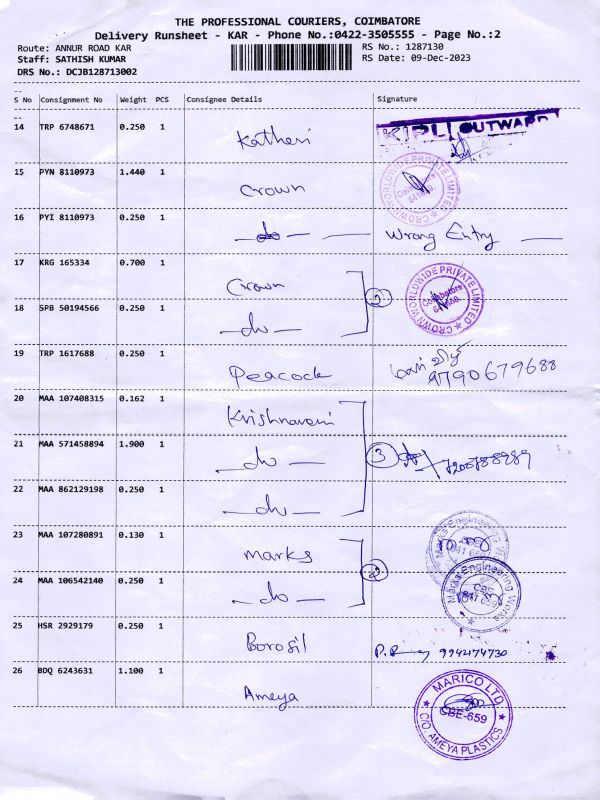 THE PROFESSIONAL COURIERS, COIMBATORE
Delivery Runsheet - KAR - Phone No.:0422-3505555 - Page No.:2
Route: ANNUR ROAD KAR
RS No.: 1287130
Staff: SATHISH KUMAR
RS Date: 09-Dec-2023
DRS No.: DCJB128713002
S No Consignment No Weight PCS Consignee Details Signature
14 TRP 6748671 0.250 1 Katheri KIPL OUTWARD
15 PYN 8110973 1.440 1 Crown CROWN WORLDWIDE PRIVATE LIMITED Coimbatore
16 PYI 8110973 0.250 1 — do — — Wrong Entry —
17 KRG 165334 0.700 1 Crown 2 CROWN WORLDWIDE PRIVATE LIMITED Coimbatore
18 SPB 50194566 0.250 1 — do —
19 TRP 1617688 0.250 1 Peacock 9790679688
20 MAA 107408315 0.162 1 Krishnaveni
21 MAA 571458894 1.900 1 — do — 3
22 MAA 862129198 0.250 1 — do —
23 MAA 107280891 0.130 1 marks Marks Engineering Works
24 MAA 106542140 0.250 1 — do — 2 Marks Engineering Works CBE
25 HSR 2929179 0.250 1 Borosil
26 BDQ 6243631 1.100 1 Ameya MARICO LTD CBE-659 C/O. AMEYA PLASTICS